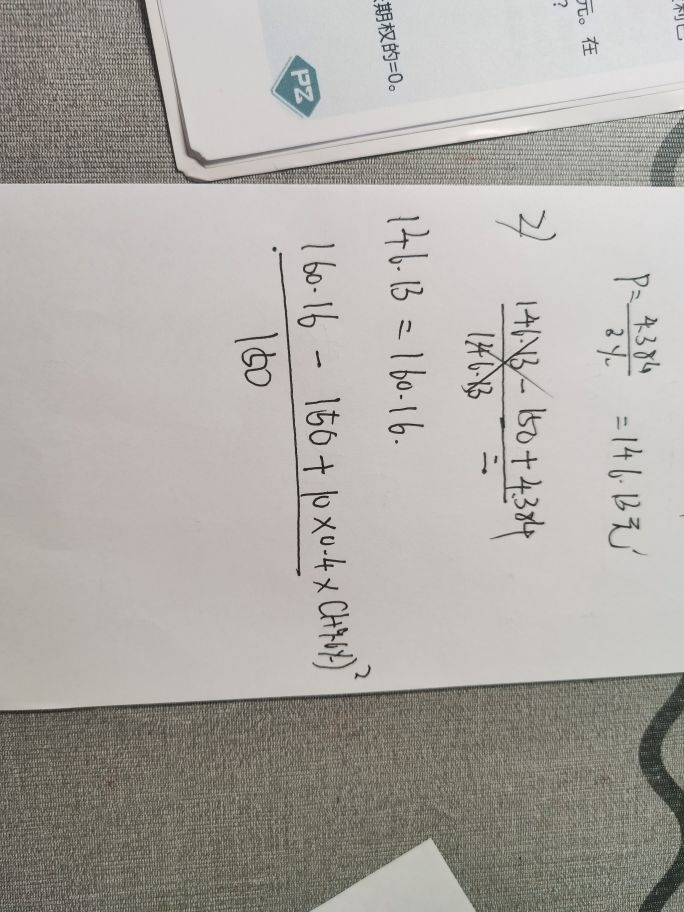 利
元。在
?
期权的=0。
PZ
P=4.384/3% =146.13元
2)
146.13-150+4.384
146.13 =
146.13=160.16.
160.16-150+10×0.4×(1+9.6%)²
150